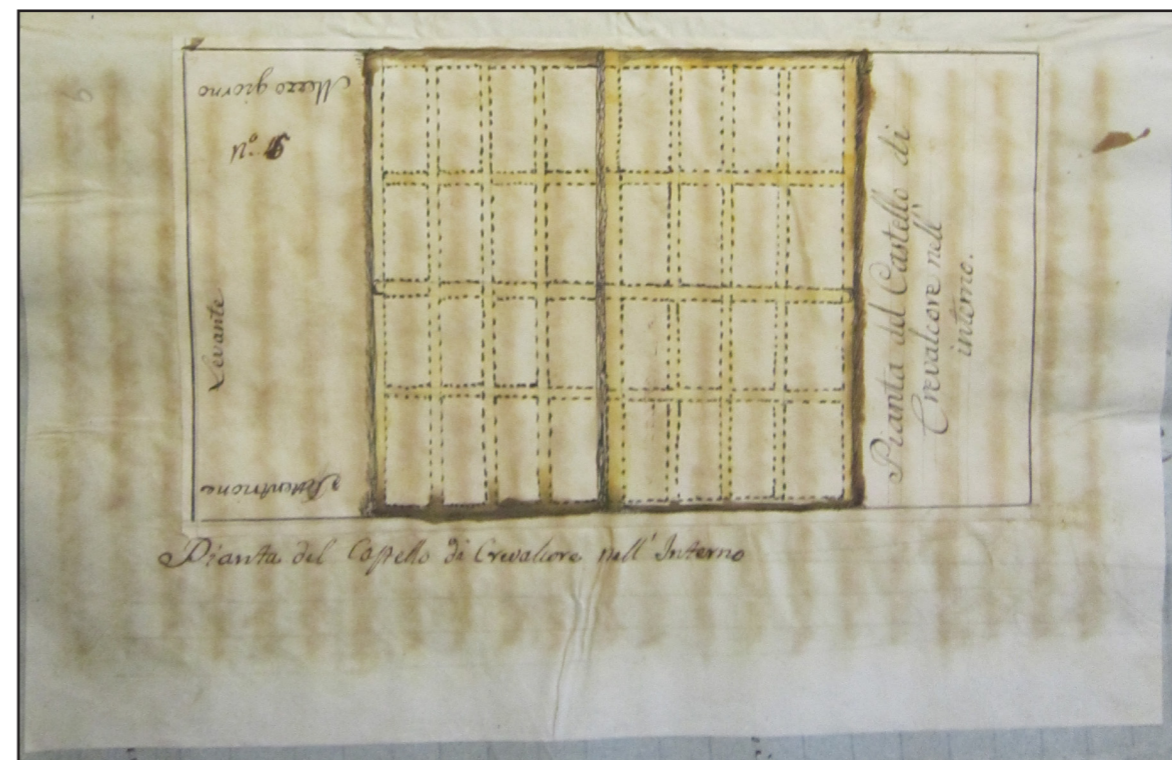 Mezzo giorno
Levante
Settentrione
Pianta del Castello di
Crevalcore nell'
interno.
Pianta del Castello di Crevalcore nell' Interno